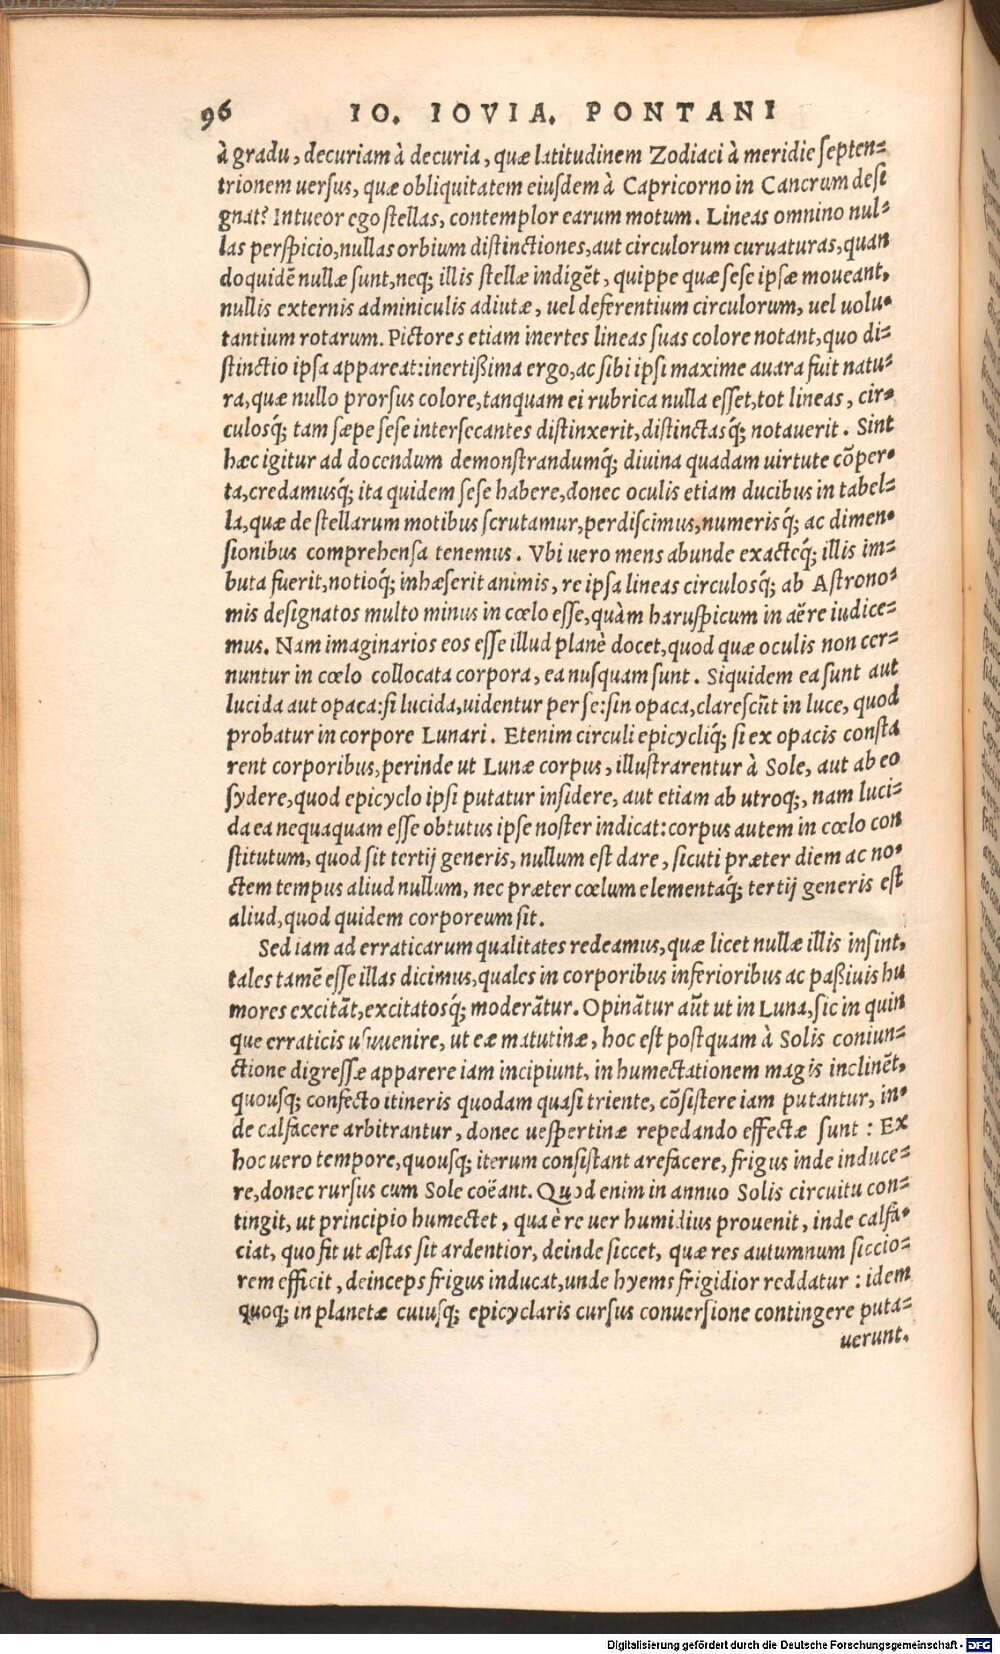 96 IO. IOVIA. PONTANI
à gradu, decuriam à decuria, quæ latitudinem Zodiaci à meridie septen-
trionem uersus, quæ obliquitatem eiusdem à Capricorno in Cancrum desi
gnat? Intueor ego stellas, contemplor earum motum. Lineas omnino nul-
las perspicio, nullas orbium distinctiones, aut circulorum curuaturas, quan
doquidē nullæ sunt, neq; illis stellæ indigēt, quippe quæ sese ipsæ moueant,
nullis externis adminiculis adiutæ, uel deferentium circulorum, uel uolu-
tantium rotarum. Pictores etiam inertes lineas suas colore notant, quo di-
stinctio ipsa appareat: inertißima ergo, ac sibi ipsi maxime auara fuit natu-
ra, quæ nullo prorsus colore, tanquam ei rubrica nulla esset, tot lineas, cir-
culosq́; tam sæpe sese intersecantes distinxerit, distinctasq́; notauerit. Sint
hæc igitur ad docendum demonstrandumq́; diuina quadam uirtute cōper-
ta, credamusq́; ita quidem sese habere, donec oculis etiam ducibus in tabel-
la, quæ de stellarum motibus scrutamur, perdiscimus, numerisq́; ac dimen-
sionibus comprehensa tenemus. Vbi uero mens abunde exacteq́; illis im-
buta fuerit, notioq́; inhæserit animis, re ipsa lineas circulosq́; ab Astrono-
mis designatos multo minus in cœlo esse, quàm haruspicum in aëre iudice-
mus. Nam imaginarios eos esse illud planè docet, quod quæ oculis non cer-
nuntur in cœlo collocata corpora, ea nusquam sunt. Siquidem ea sunt aut
lucida aut opaca: si lucida, uidentur per se: sin opaca, clarescūt in luce, quod
probatur in corpore Lunari. Etenim circuli epicycliq́; si ex opacis consta
rent corporibus, perinde ut Lunæ corpus, illustrarentur à Sole, aut ab eo
sydere, quod epicyclo ipsi putatur insidere, aut etiam ab utroq;, nam luci-
da ea nequaquam esse obtutus ipse noster indicat: corpus autem in cœlo con
stitutum, quod sit tertij generis, nullum est dare, sicuti præter diem ac no-
ctem tempus aliud nullum, nec præter cœlum elementaq́; tertij generis est
aliud, quod quidem corporeum sit.
Sed iam ad erraticarum qualitates redeamus, quæ licet nullæ illis insint,
tales tamē esse illas dicimus, quales in corporibus inferioribus ac paßiuis hu
mores excitāt, excitatosq́; moderātur. Opinātur aūt ut in Luna, sic in quin
que erraticis usuuenire, ut eæ matutinæ, hoc est postquam à Solis coniun-
ctione digressæ apparere iam incipiunt, in humectationem magis inclinēt,
quousq; confecto itineris quodam quasi triente, cōsistere iam putantur, in-
de calfacere arbitrantur, donec uespertinæ repedando effectæ sunt: Ex
hoc uero tempore, quousq; iterum consistant arefacere, frigus inde induce-
re, donec rursus cum Sole coëant. Quod enim in annuo Solis circuitu con-
tingit, ut principio humectet, qua è re uer humidius prouenit, inde calfa-
ciat, quo fit ut æstas sit ardentior, deinde siccet, quæ res autumnum siccio-
rem efficit, deinceps frigus inducat, unde hyems frigidior reddatur: idem
quoq; in planetæ cuiusq; epicyclaris cursus conuersione contingere puta-
uerunt.
Digitalisierung gefördert durch die Deutsche Forschungsgemeinschaft - DFG